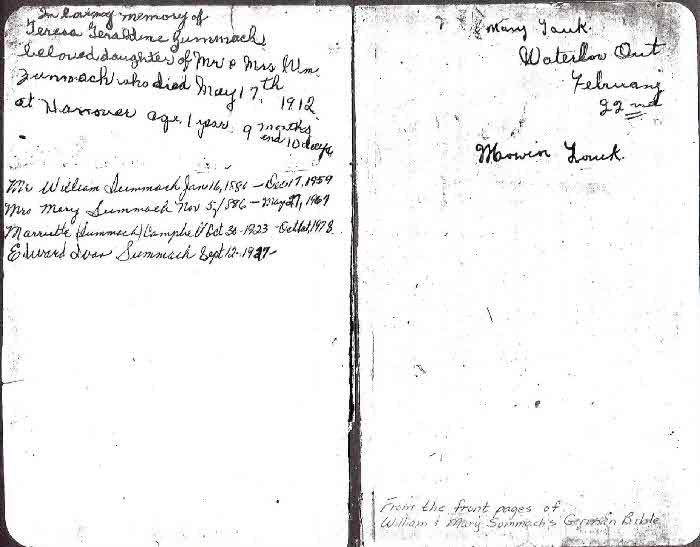 In loving memory of
Teresa Geraldine Zummach
beloved daughter of Mr & Mrs Wm.
Zummach who died May 17th
1912
at Hanover age 1 year 9 months
and 10 days
Mr William Summach Jan 16, 1886 – Dec 17, 1959
Mrs Mary Summach Nov 5/1886 – May 27, 1969
(Summach) Campbell Oct 30-1923 - Oct 1st, 1978
Edward Ivan Summach Sept 12-1927-
Mary Louk.
Waterloo Ont
February
22nd
Louk.
From the front pages of
William & Mary Summach's German Bible